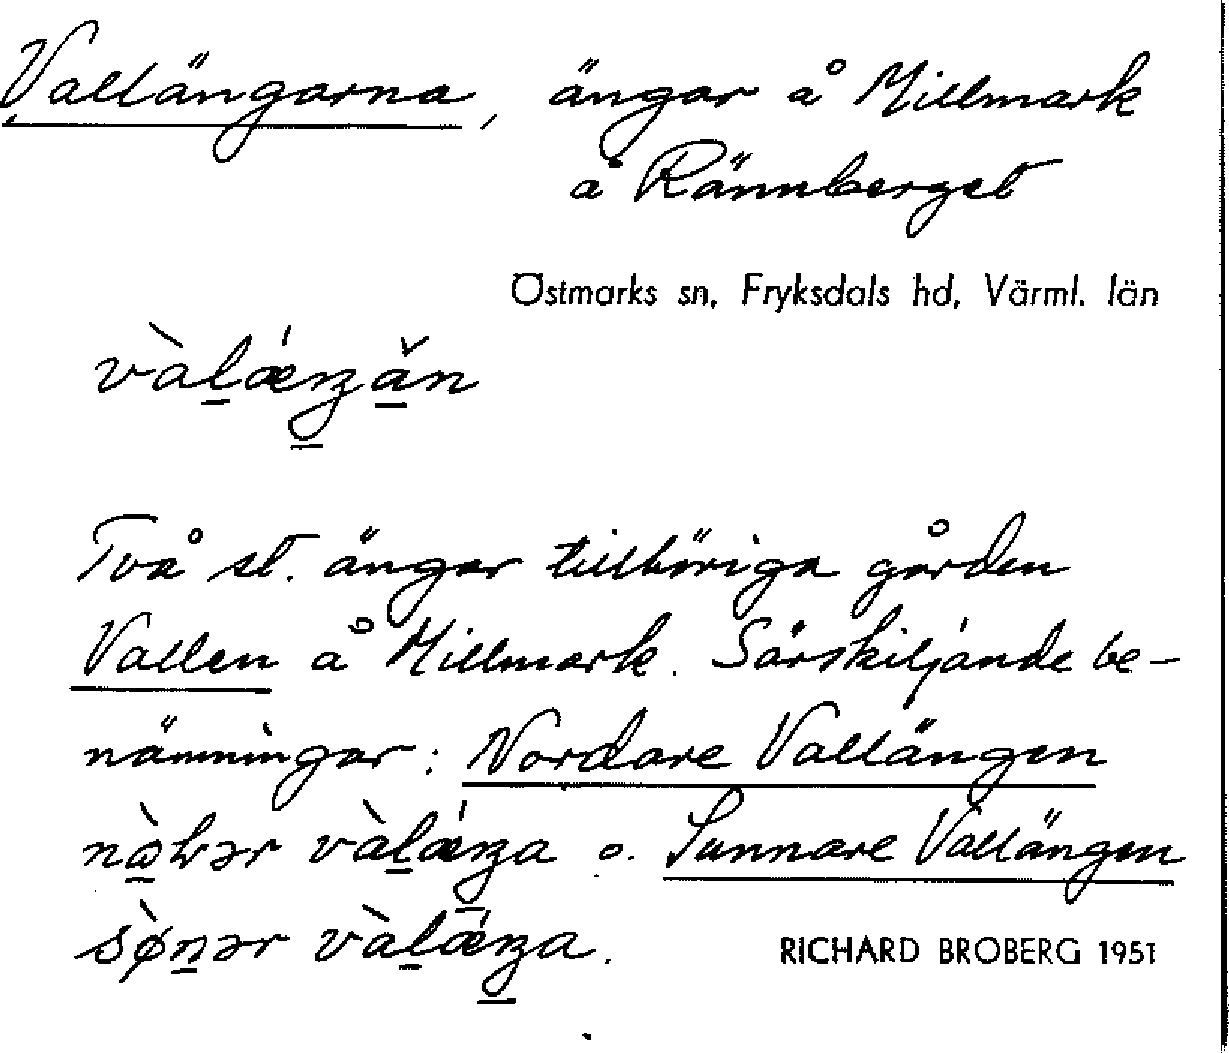 Vallängarna, ängar å Millmark
å Rännberget
Östmarks sn, Fryksdals hd, Värml. län
Två st. ängar tillhöriga gården
Vallen å Millmark. Särskiljande be-
nämningar: Nordare Vallängen
o. Sunnare Vallängen
RICHARD BROBERG 1951